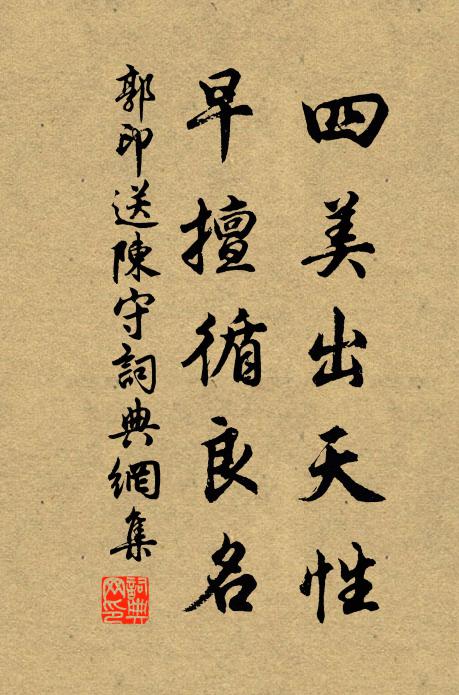 四美出天性
早擅循良名
郭印送陳守詞典網集
詞典網印